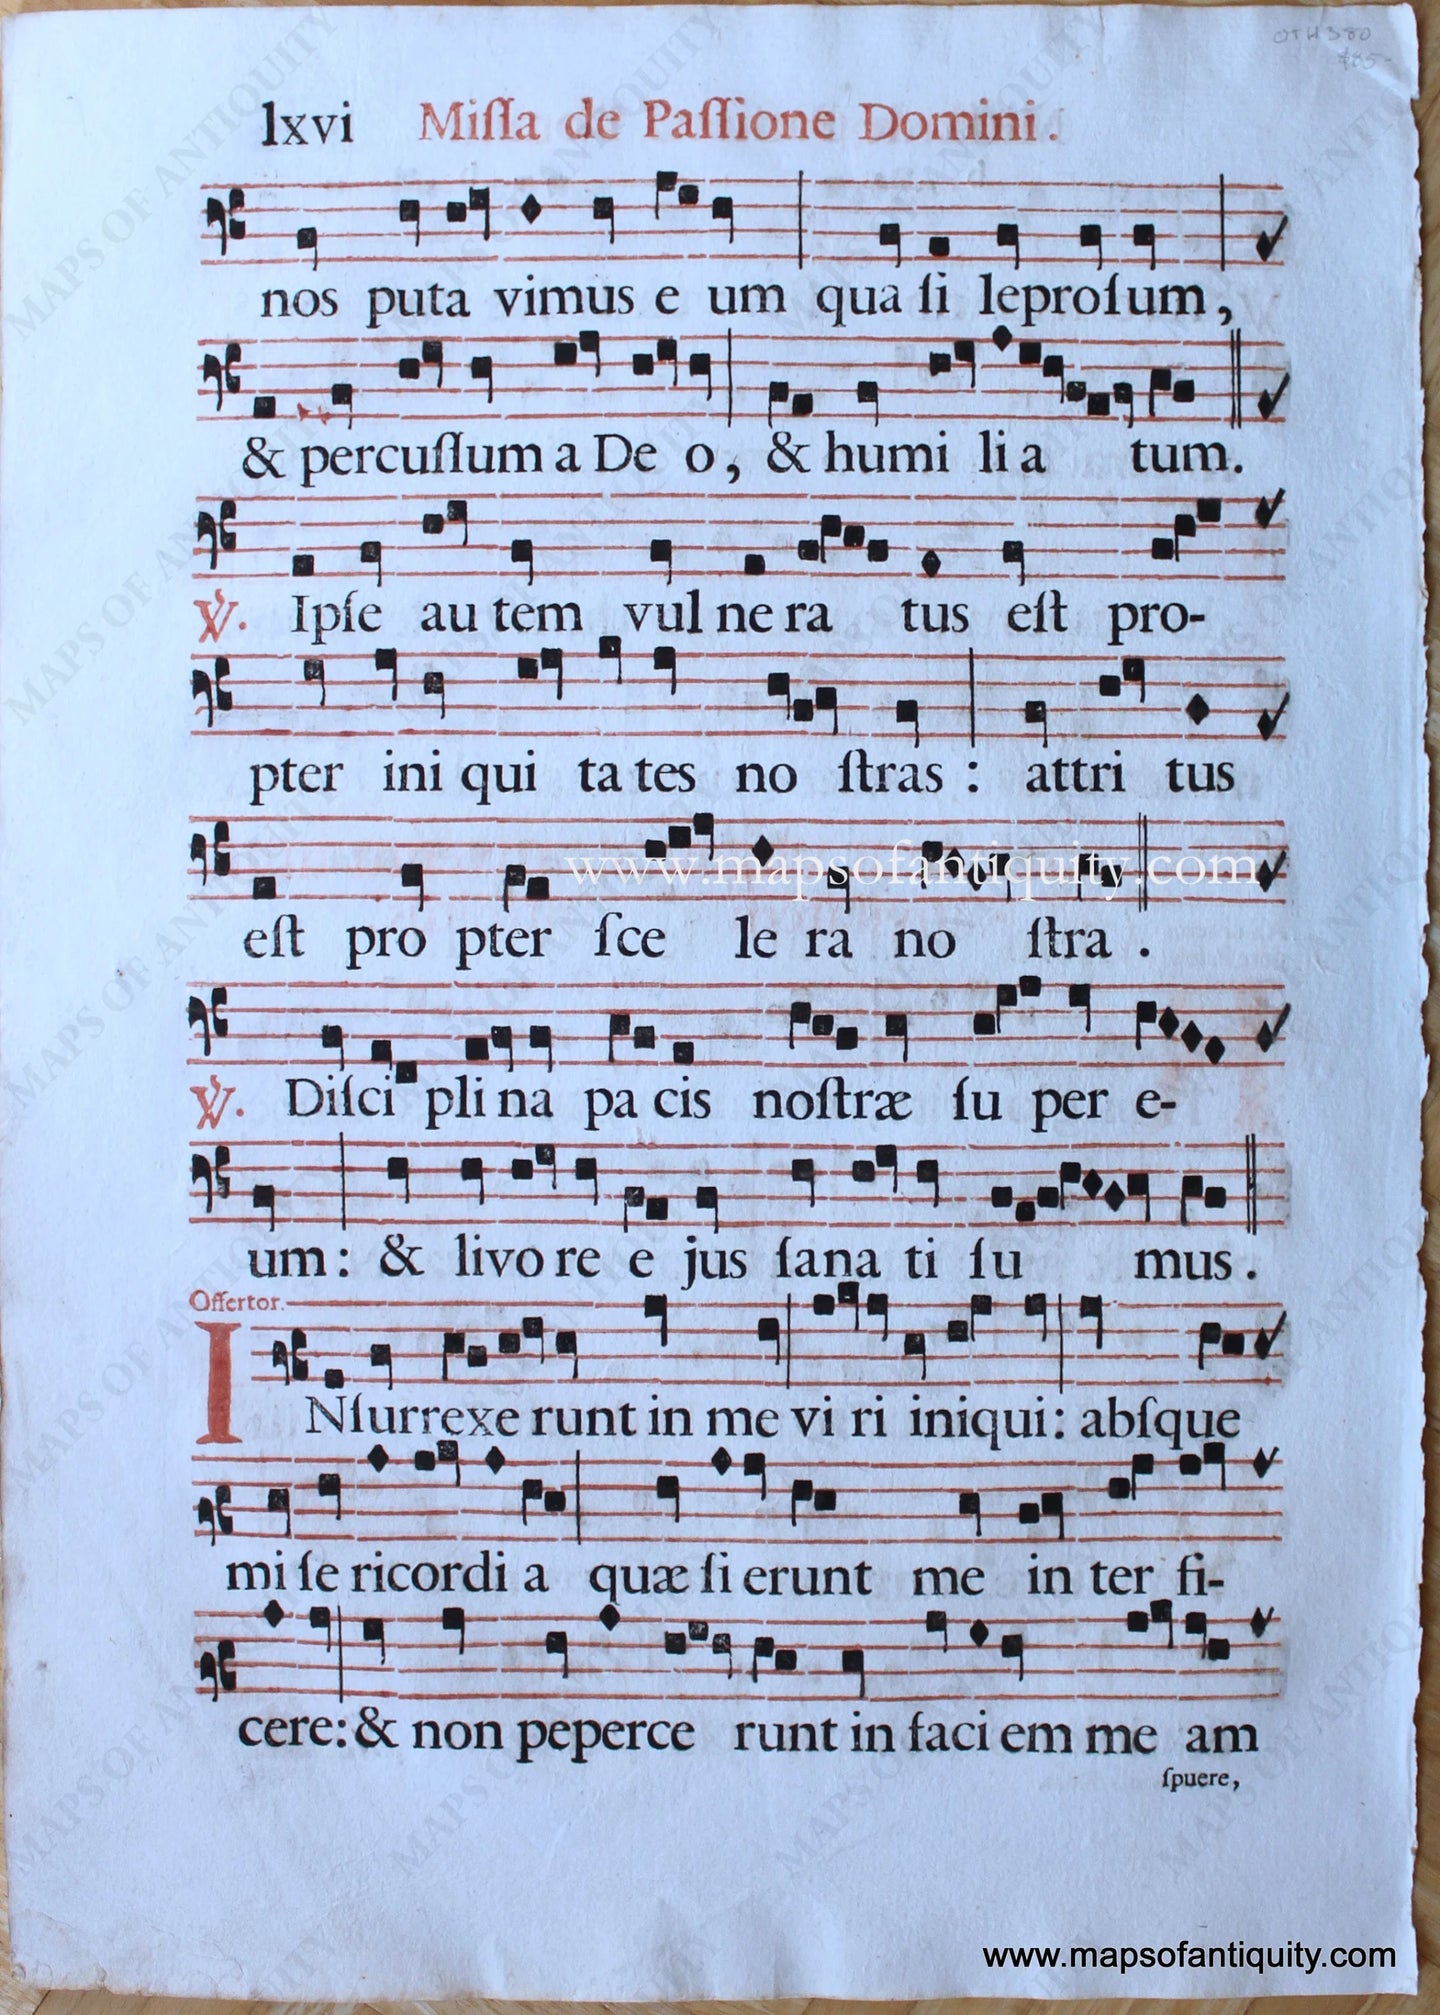 OTH380
$85-
lxvi Miſſa de Paſſione Domini.
nos puta vimus e um qua ſi leproſum,
& percuſſum a De o, & humi li a tum.
℣. Ipſe au tem vul ne ra tus eſt pro-
pter ini qui ta tes no ſtras : attri tus
eſt pro pter ſce le ra no ſtra .
℣. Diſci pli na pa cis noſtræ ſu per e-
um : & livo re e jus ſana ti ſu mus .
Offertor.
INſurrexe runt in me vi ri iniqui : abſque
mi ſe ricordi a quæ ſi erunt me in ter fi-
cere: & non peperce runt in faci em me am
ſpuere,
www.mapsofantiquity.com
www.mapsofantiquity.com